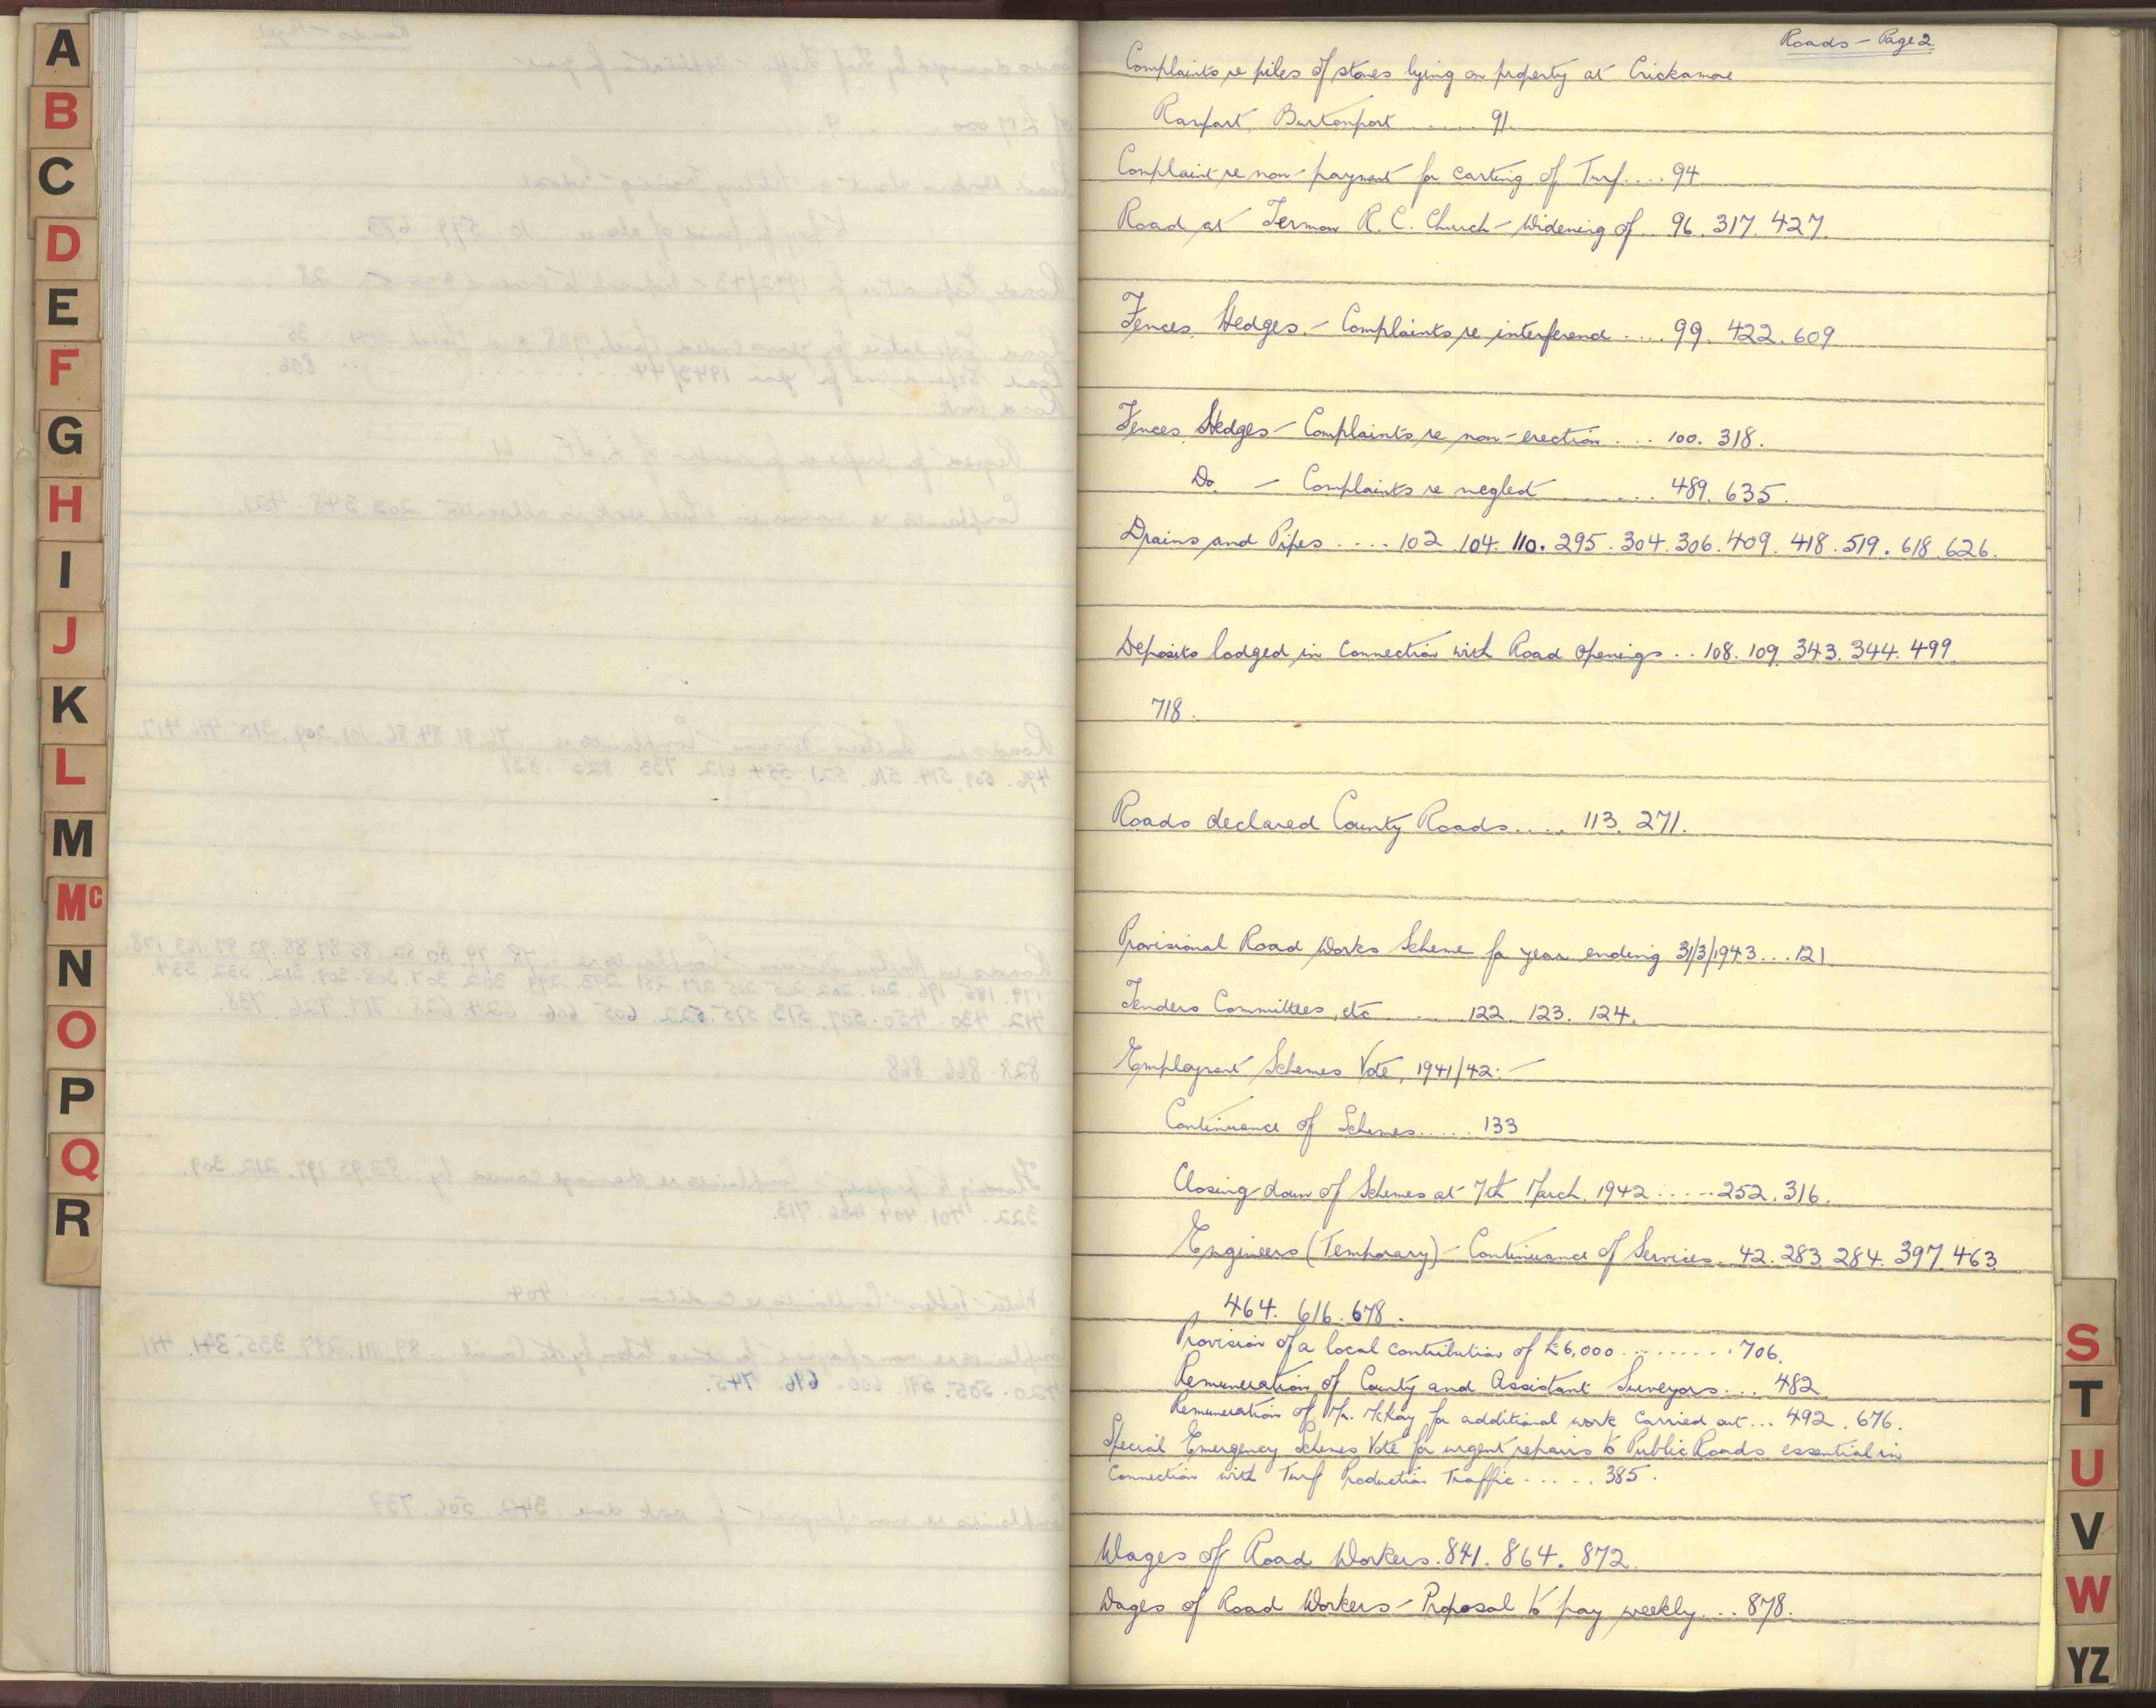 A
B
C
D
E
F
G
H
I
J
K
L
M
Mc
N
O
P
Q
R
Roads - Page 2.
Complaints re piles of stones lying on property at Crickamore
Ranfart, Burtonport ...... 91.
Complaint re non-payment for carting of Turf.... 94
Road at Termon R. C. Church - Widening of .. 96. 317. 427.
Fences, Hedges. - Complaints re interference .... 99. 422. 609
Fences, Hedges - Complaints re non-erection .... 100. 318.
Do. - Complaints re neglect ......... 489. 635.
Drains and Pipes .... 102. 104. 110. 295. 304. 306. 409. 418. 519. 618. 626.
Deposits lodged in Connection with Road Openings .. 108. 109. 343. 344. 499.
718.
Roads declared County Roads..... 113. 271.
Provisional Road Works Scheme for year ending 31/3/1943... 121.
Tenders Committees, etc ........ 122. 123. 124.
Employment Schemes Vote, 1941/42:-
Continuance of Schemes...... 133
Closing down of Schemes at 7th March, 1942 ..... 252. 316.
Engineers (Temporary) - Continuance of Services. 42. 283. 284. 397. 463.
464. 616. 678.
Provision of a local contribution of £6,000 ......... 706.
Remuneration of County and Assistant Surveyors.... 482
Remuneration of Mr. McKay for additional work carried out... 492. 676.
Special Emergency Schemes Vote for urgent repairs to Public Roads essential in
Connection with Turf Production Traffic ..... 385.
Wages of Road Workers. 841. 864. 872.
Wages of Road Workers - Proposal to pay weekly.... 878.
S
T
U
V
W
YZ